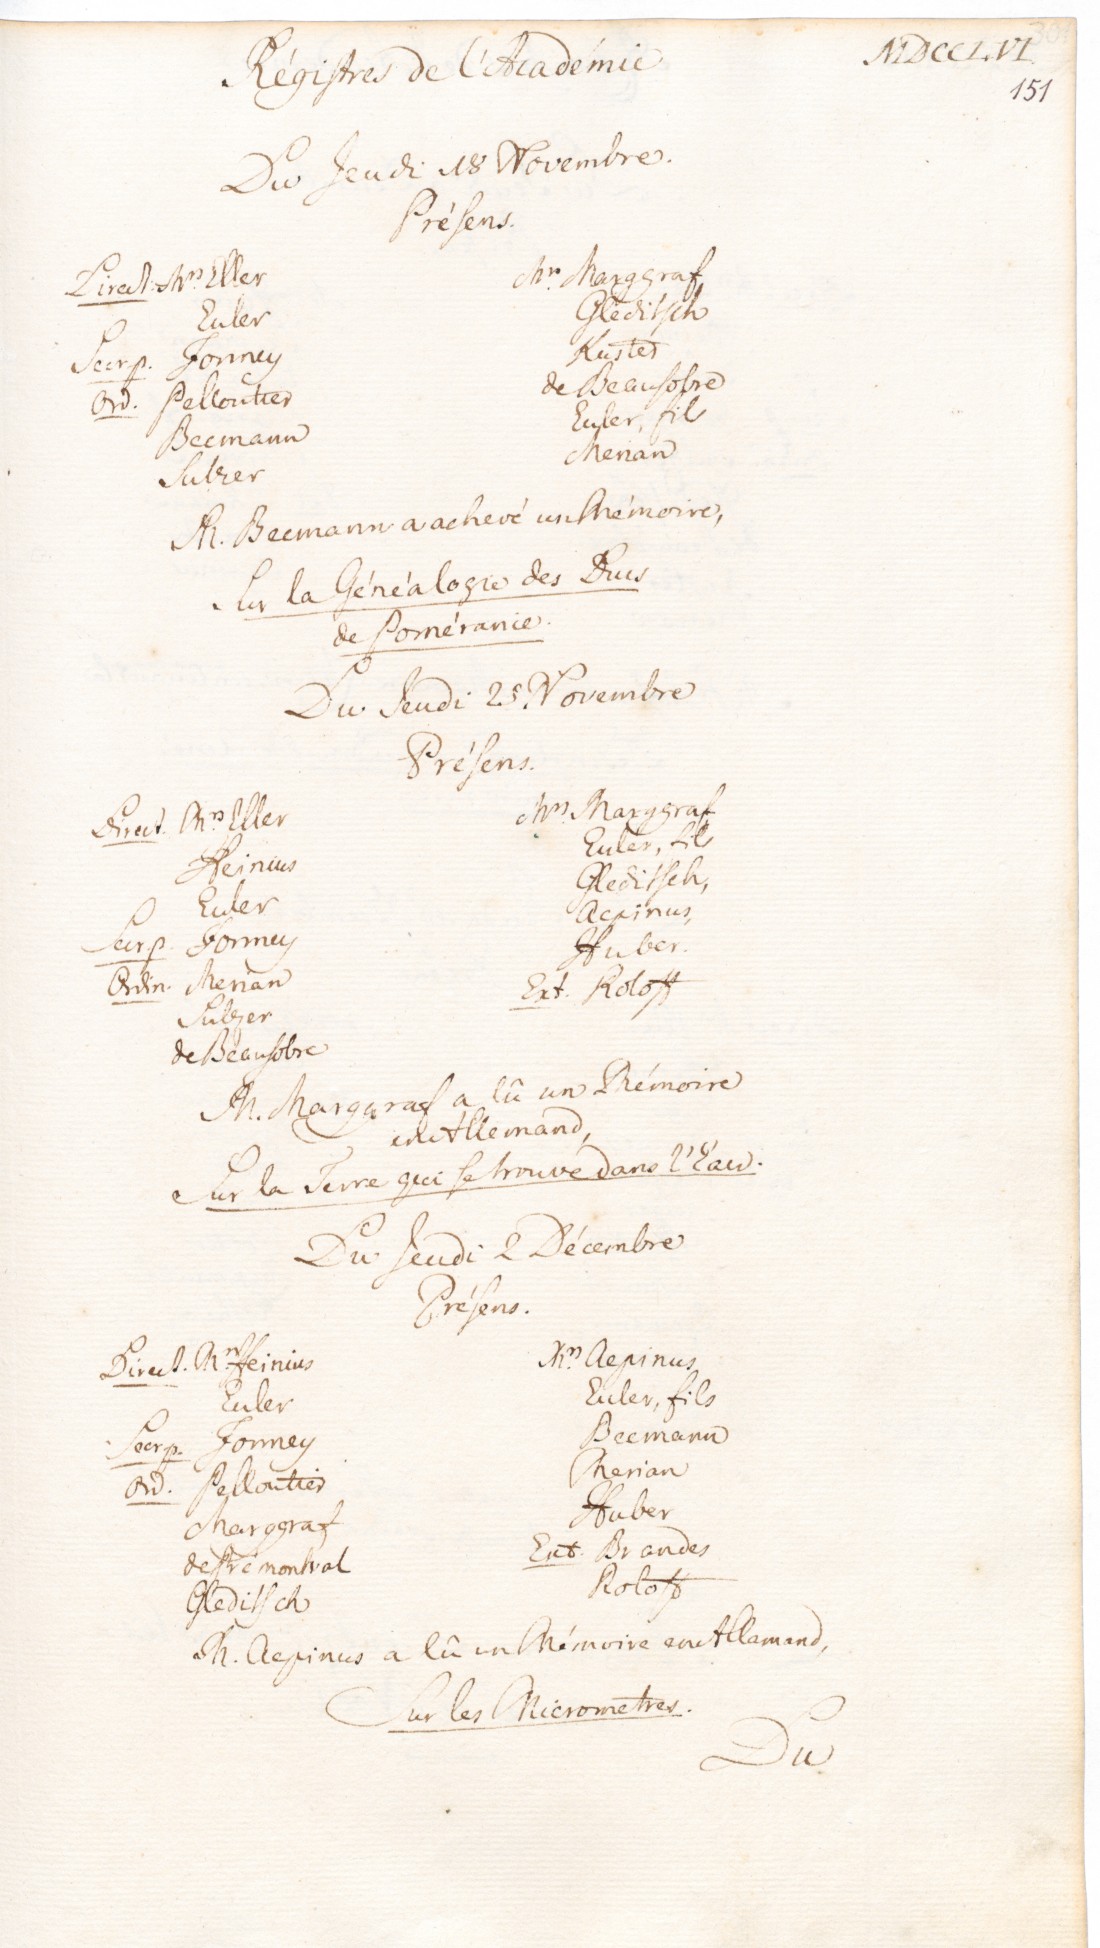 Régistres de l'Académie
MDCCLVI
151
Du Jeudi 18 Novembre.
Présens.
Direct. Mrs Eller
Euler
Secr. p. Formey
Ord. Pelloutier
Becmann
Sulzer
Mrs. Marggraf
Gleditsch
Kuster
de Beausobre
Euler, fils
Merian
M. Becmann a achevé un Mémoire,
Sur la Généalogie des Ducs
de Poméranie.
Du Jeudi 25 Novembre
Présens.
Direct. Mrs Eller
Heinius
Euler
Secr. p. Formey
Ordin. Merian
Sulzer
de Beausobre
Mrs. Marggraf
Euler, fils
Gleditsch,
Aepinus,
Huber.
Ext. Roloff
M. Marggraf a lû un Mémoire
en Allemand,
Sur la Terre qui se trouve dans l'Eau.
Du Jeudi 2 Décembre
Présens.
Direct. Mrs Heinius
Euler
Secr. p. Formey
Ord. Pelloutier
Marggraf
de Prémontval
Gleditsch
Mrs Aepinus
Euler, fils
Becmann
Merian
Huber
Ext. Brandes
Roloff
M. Aepinus a lû un Mémoire en Allemand,
Sur les Micrometres.
Du